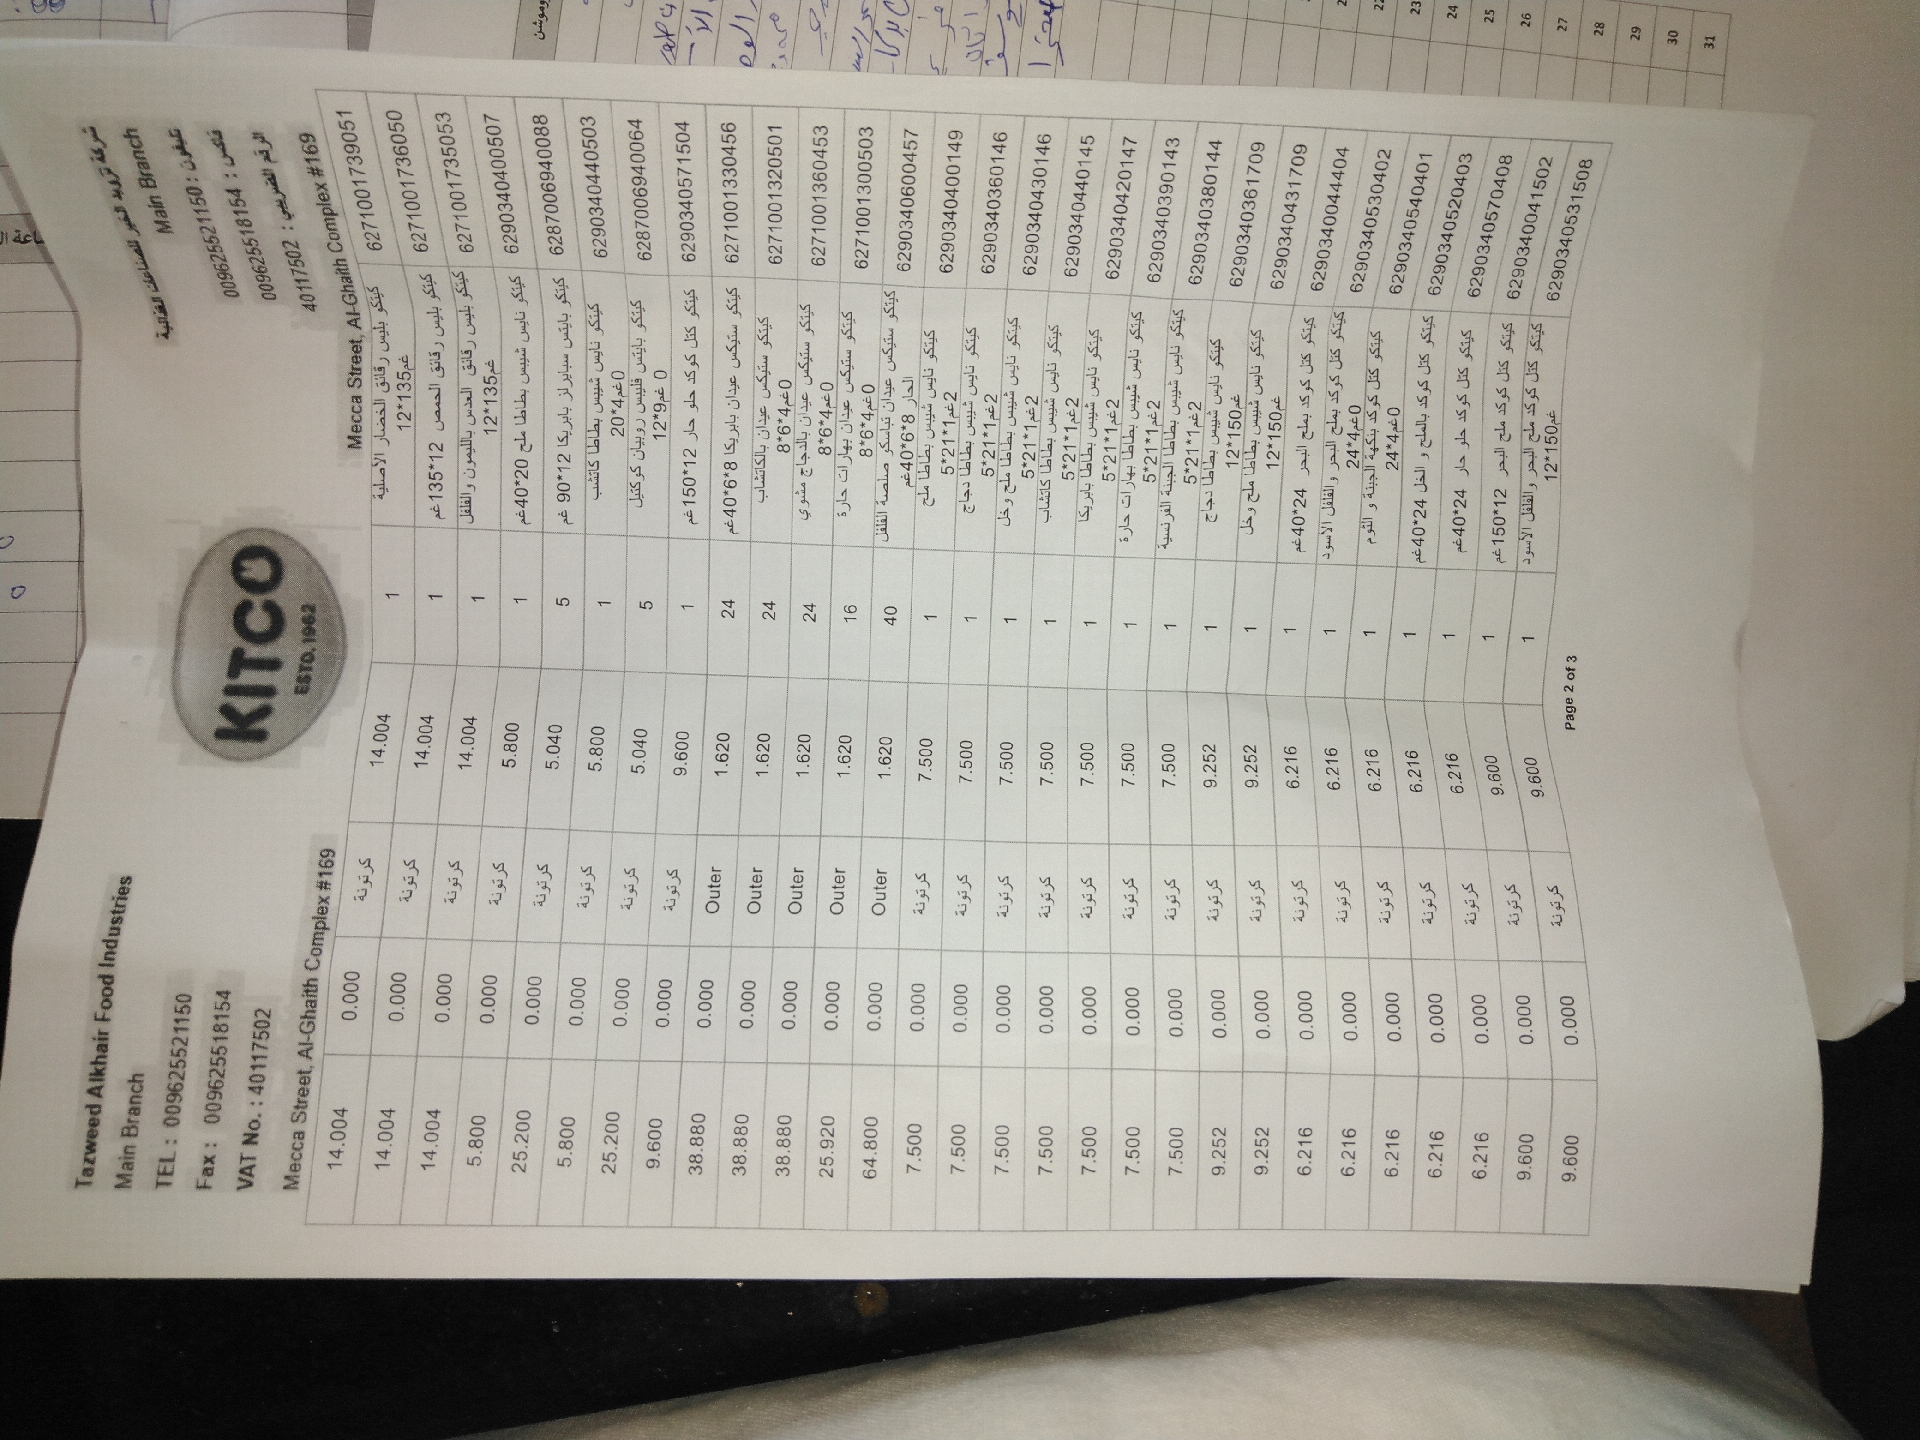 Tazweed Alkhair Food Industries
Main Branch
TEL : 0096255521150
Fax : 0096255518154
VAT No. : 40117502
Mecca Street, Al-Ghaith Complex #169
KITCO
ESTD. 1962
شركة تزويد الخير للصناعات الغذائية
Main Branch
تليفون : 0096255521150
فاكس : 0096255518154
الرقم الضريبي : 40117502
Mecca Street, Al-Ghaith Complex #169
14.004 0.000 كرتونة 14.004 1 كيتكو بليس رقائق الخضار الأصلية 12*135غم 6271001739051
14.004 0.000 كرتونة 14.004 1 كيتكو بليس رقائق الحمص 12*135غم 6271001736050
14.004 0.000 كرتونة 14.004 1 كيتكو بليس رقائق العدس بالليمون والفلفل 12*135غم 6271001735053
5.800 0.000 كرتونة 5.800 1 كيتكو نايس شيبس بطاطا ملح 20*40غم 6290340400507
25.200 0.000 كرتونة 5.040 5 كيتكو بايتس سبايرلز بابريكا 12*90 غم 6287006940088
5.800 0.000 كرتونة 5.800 1 كيتكو نايس شيبس بطاطا كاتشب 20*40غم 6290340440503
25.200 0.000 كرتونة 5.040 5 كيتكو بايتس فليبس روبيان كوكتيل 12*90غم 6287006940064
9.600 0.000 كرتونة 9.600 1 كيتكو كتل كوكد حلو حار 12*150غم 6290340571504
38.880 0.000 Outer 1.620 24 كيتكو ستيكس عيدان بابريكا 8*6*40غم 6271001330456
38.880 0.000 Outer 1.620 24 كيتكو ستيكس عيدان بالكاتشاب 8*6*40غم 6271001320501
38.880 0.000 Outer 1.620 24 كيتكو ستيكس عيدان بالدجاج مشوي 8*6*40غم 6271001360453
25.920 0.000 Outer 1.620 16 كيتكو ستيكس عيدان بهارات حارة 8*6*40غم 6271001300503
64.800 0.000 Outer 1.620 40 كيتكو ستيكس عيدان تباسكو صلصة الفلفل الحار 8*6*40غم 6290340600457
7.500 0.000 كرتونة 7.500 1 كيتكو نايس شيبس بطاطا ملح 5*21*12غم 6290340400149
7.500 0.000 كرتونة 7.500 1 كيتكو نايس شيبس بطاطا دجاج 5*21*12غم 6290340360146
7.500 0.000 كرتونة 7.500 1 كيتكو نايس شيبس بطاطا ملح وخل 5*21*12غم 6290340430146
7.500 0.000 كرتونة 7.500 1 كيتكو نايس شيبس بطاطا كاتشاب 5*21*12غم 6290340440145
7.500 0.000 كرتونة 7.500 1 كيتكو نايس شيبس بطاطا بابريكا 5*21*12غم 6290340420147
7.500 0.000 كرتونة 7.500 1 كيتكو نايس شيبس بطاطا بهارات حارة 5*21*12غم 6290340390143
7.500 0.000 كرتونة 7.500 1 كيتكو نايس شيبس بطاطا الجبنة الفرنسية 5*21*12غم 6290340380144
9.252 0.000 كرتونة 9.252 1 كيتكو نايس شيبس بطاطا دجاج 12*150غم 6290340361709
9.252 0.000 كرتونة 9.252 1 كيتكو نايس شيبس بطاطا ملح وخل 12*150غم 6290340431709
6.216 0.000 كرتونة 6.216 1 كيتكو كتل كوكد بملح البحر 24*40غم 6290340044404
6.216 0.000 كرتونة 6.216 1 كيتكو كتل كوكد بملح البحر والفلفل الاسود 24*40غم 6290340530402
6.216 0.000 كرتونة 6.216 1 كيتكو كتل كوكد بنكهة الجبنة و الثوم 24*40غم 6290340540401
6.216 0.000 كرتونة 6.216 1 كيتكو كتل كوكد بالملح و الخل 24*40غم 6290340520403
6.216 0.000 كرتونة 6.216 1 كيتكو كتل كوكد حلو حار 24*40غم 6290340570408
9.600 0.000 كرتونة 9.600 1 كيتكو كتل كوكد ملح البحر 12*150غم 6290340041502
9.600 0.000 كرتونة 9.600 1 كيتكو كتل كوكد ملح البحر والفلفل الأسود 12*150غم 6290340531508
Page 2 of 3
23
24
25
26
27
28
29
30
31